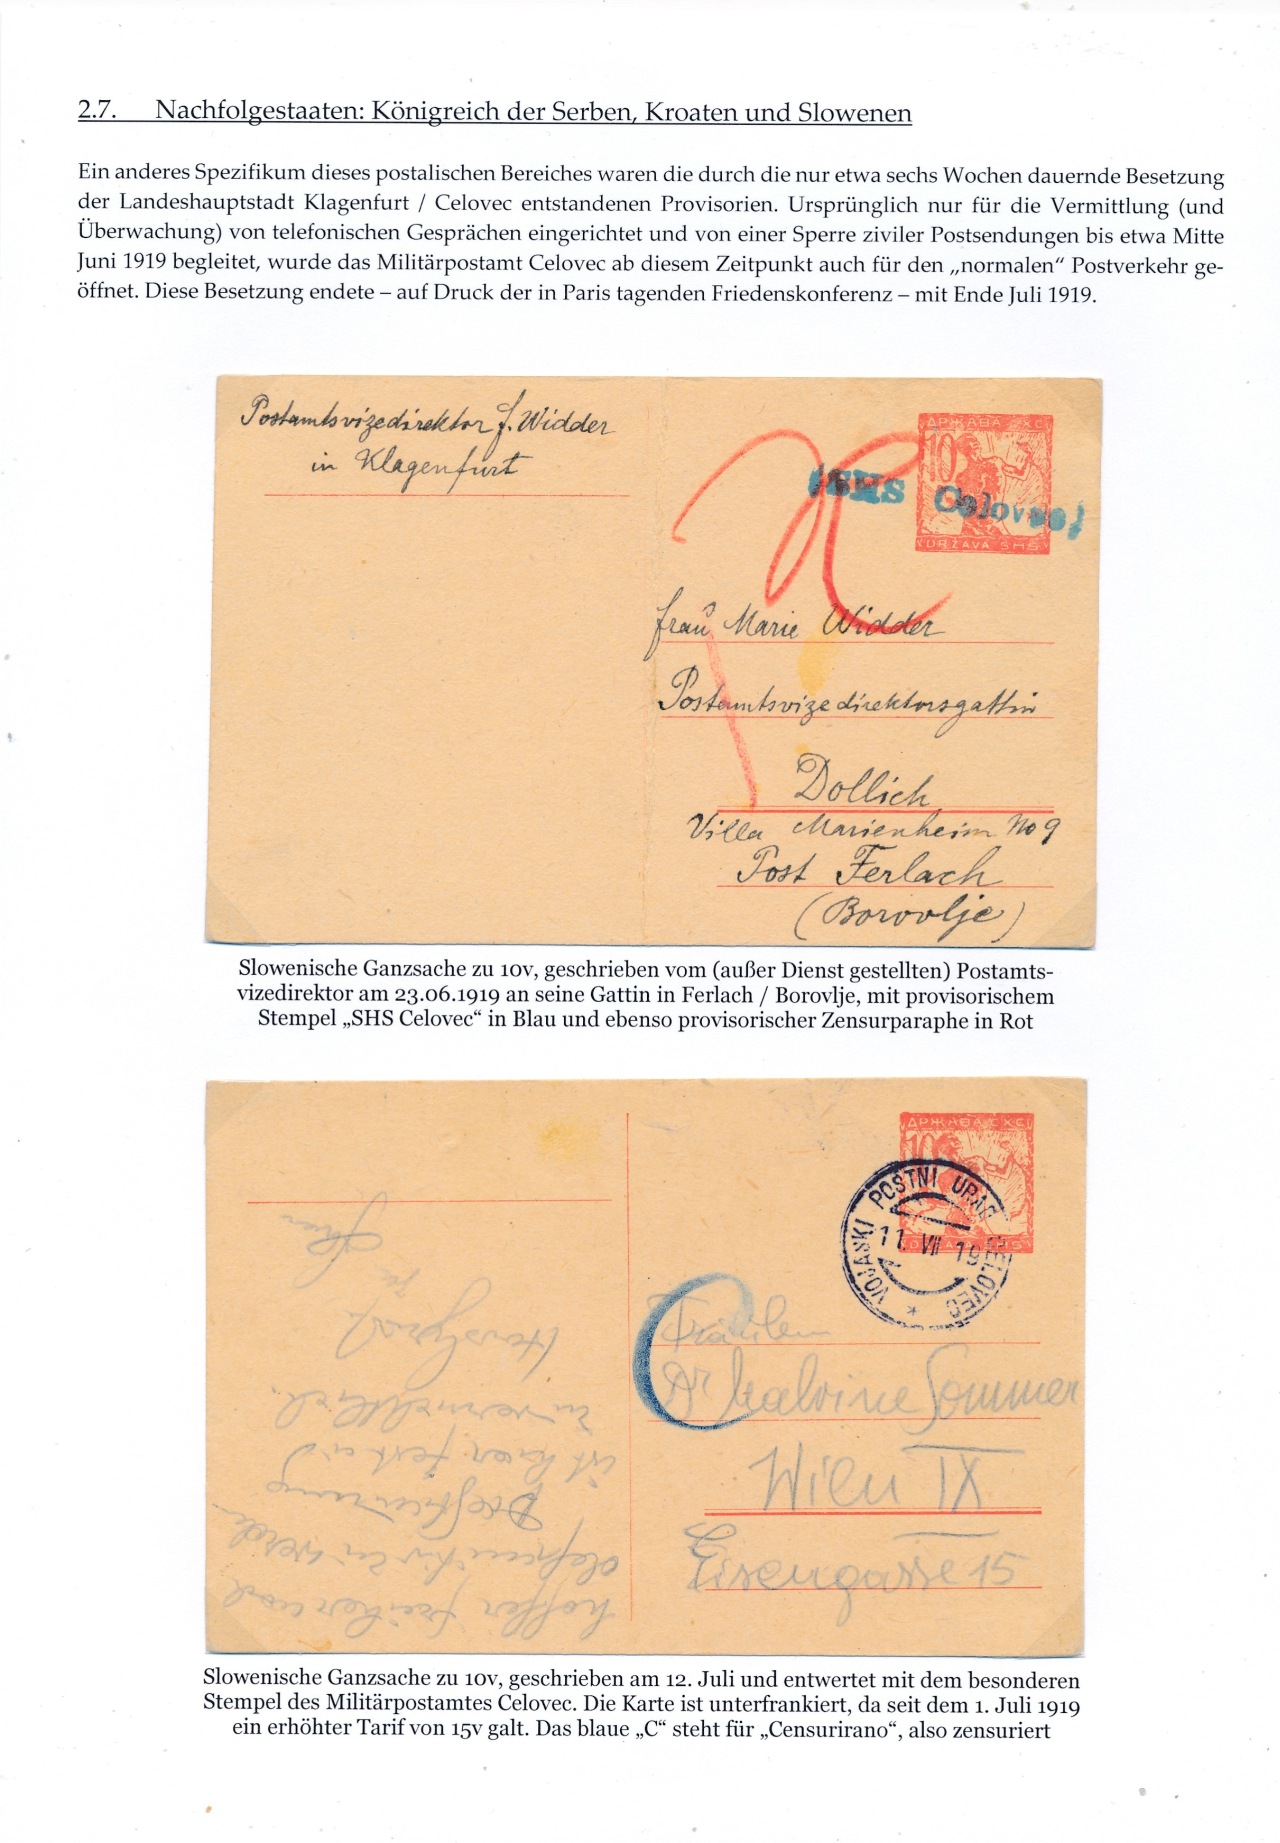 2.7. Nachfolgestaaten: Königreich der Serben, Kroaten und Slowenen
Ein anderes Spezifikum dieses postalischen Bereiches waren die durch die nur etwa sechs Wochen dauernde Besetzung
der Landeshauptstadt Klagenfurt / Celovec entstandenen Provisorien. Ursprünglich nur für die Vermittlung (und
Überwachung) von telefonischen Gesprächen eingerichtet und von einer Sperre ziviler Postsendungen bis etwa Mitte
Juni 1919 begleitet, wurde das Militärpostamt Celovec ab diesem Zeitpunkt auch für den „normalen“ Postverkehr ge-
öffnet. Diese Besetzung endete – auf Druck der in Paris tagenden Friedenskonferenz – mit Ende Juli 1919.
Postamtsvizedirektor J. Widder
in Klagenfurt
ДРЖАВА СХС
10
SHS Celovec
DRŽAVA SHS
Frau Marie Widder
Postamtsvizedirektorsgattin
Dollich
Villa Marienheim No 9
Post Ferlach
(Borovlje)
Slowenische Ganzsache zu 10v, geschrieben vom (außer Dienst gestellten) Postamts-
vizedirektor am 23.06.1919 an seine Gattin in Ferlach / Borovlje, mit provisorischem
Stempel „SHS Celovec“ in Blau und ebenso provisorischer Zensurparaphe in Rot
ДРЖАВА СХС
10
VOJAŠKI POŠTNI URAD CELOVEC
11. VII 19
C
Fräulein
Dr Malvine Sommer
Wien IX
Eisengasse 15
hoffen früher und
ist hier fest und
Slowenische Ganzsache zu 10v, geschrieben am 12. Juli und entwertet mit dem besonderen
Stempel des Militärpostamtes Celovec. Die Karte ist unterfrankiert, da seit dem 1. Juli 1919
ein erhöhter Tarif von 15v galt. Das blaue „C“ steht für „Censurirano“, also zensuriert